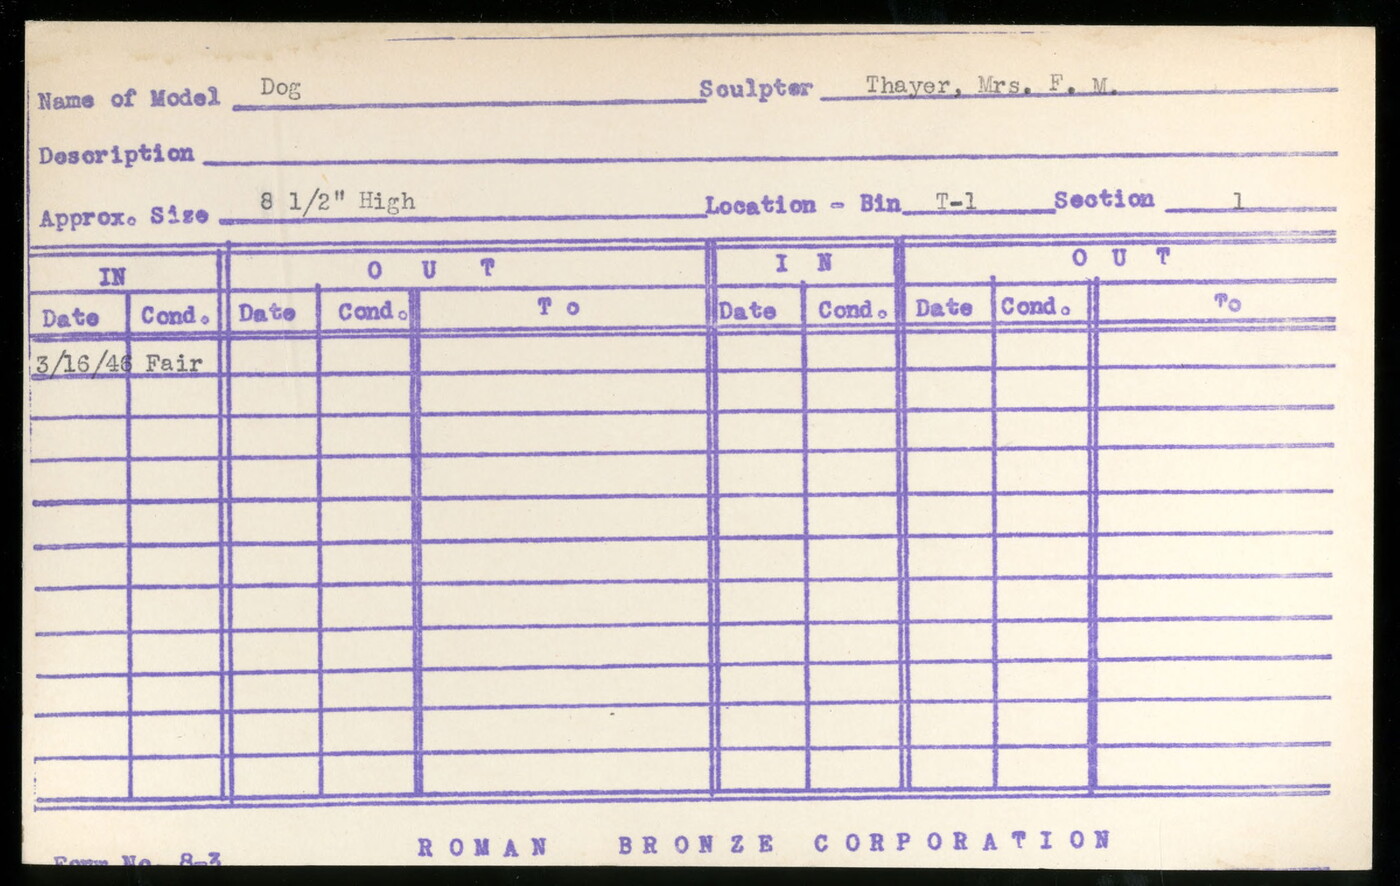 Name of Model Dog Sculptor Thayer, Mrs. F. M.
Description
Approx. Size 8 1/2" High Location - Bin T-1 Section 1
IN O U T I N O U T
Date Cond. Date Cond. T o Date Cond. Date Cond. To
3/16/46 Fair
ROMAN BRONZE CORPORATION
Form No. 8-3